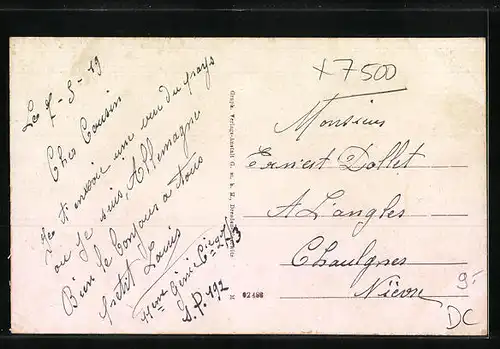 Le 7-3-19
Cher Cousin
Je t'envoie une vue du pays
ou je suis, Allemagne
Bien le bonjour a tous
petit Louis
11eme Génie Cie 13
S.P. 192
Graph. Verlags-Anstalt G. m. b. H., Dresden
M 02488
+7500
Monsieur
Ernest Dollet
A L'angles
Chaulgnes
Nièvre
9.-
DC